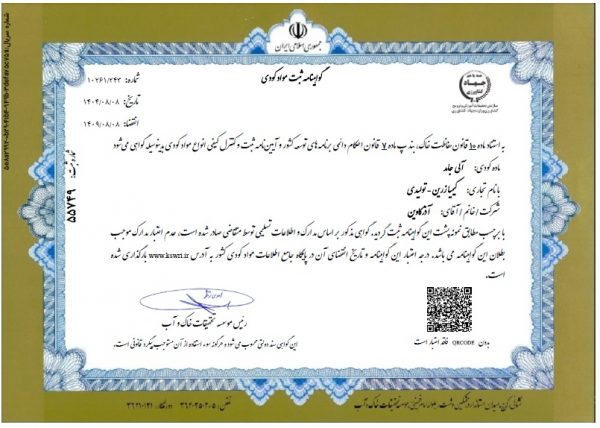 جمهوری اسلامی ایران
گواهینامه ثبت مواد کودی
شماره: ۱۰۲۶۱/۲۴۳
تاریخ: ۱۴۰۴/۰۸/۰۸
انقضا: ۱۴۰۹/۰۸/۰۸
جهاد
کشاورزی
شماره ثبت:
۵۵۷۴۹
به استناد ماده ۱۰ قانون حفاظت خاک، بند پ ماده ۷ قانون احکام دائمی برنامه های توسعه کشور و آیین نامه ثبت و کنترل کیفی انواع مواد کودی بدینوسیله گواهی می شود
ماده کودی: آلی جامد
با نام تجاری: کیمیازرین - تولیدی
شرکت / خانم / آقای: آذرکاوین
با برچسب مطابق نمونه پشت این گواهینامه ثبت گردید. گواهی مذکور بر اساس مدارک و اطلاعات تسلیمی توسط متقاضی صادر شده است، عدم اعتبار مدارک موجب
بطلان این گواهینامه می باشد. درجه اعتبار این گواهینامه و تاریخ انقضای آن در پایگاه جامع اطلاعات مواد کودی کشور به آدرس www.kswri.ir بارگذاری شده
است.
رئیس موسسه تحقیقات خاک و آب
بدون QRCODE فاقد اعتبار است
این گواهی سند دولتی محسوب می شود و هرگونه سوء استفاده از آن مستوجب پیگرد قانونی است.
تلفن:
دورنگار:
شماره سریال: